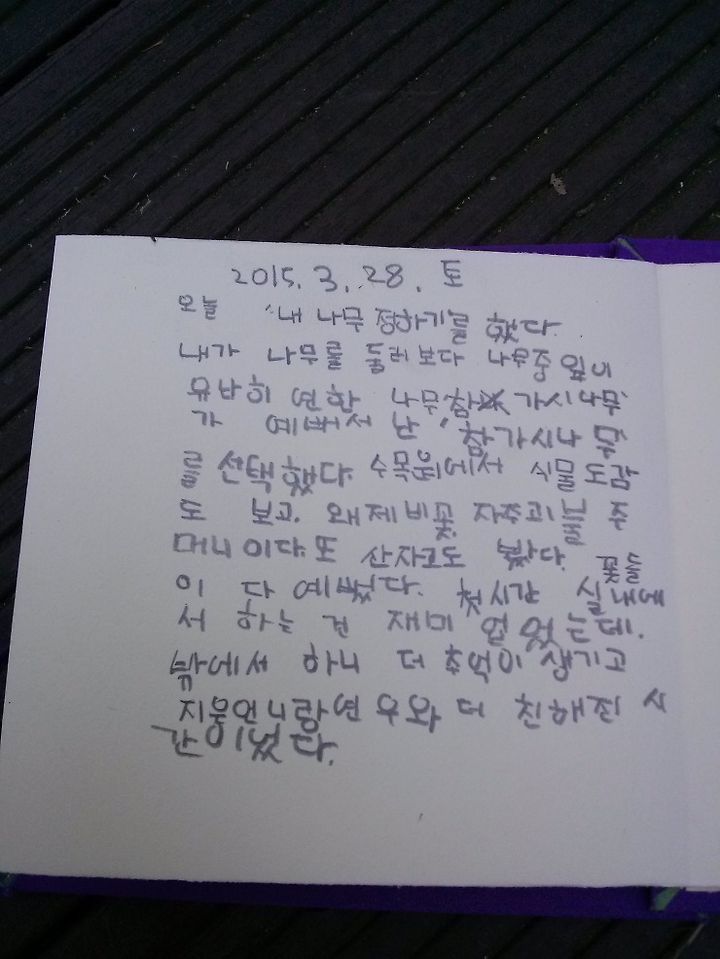 2015. 3. 28. 토
오늘 '내 나무 정하기'를 했다.
내가 나무를 둘러보다 나무중 잎이
유난히 연한 나무 '참가시나무'
가 예뻐서 난 '참가시나무'
를 선택했다. 수목원에서 식물도감
도 보고. 왜제비꽃, 자주괴불주
머니이다. 또 산자고도 봤다. 꽃들
이 다 예뻤다. 첫시간 실내에
서 하는 건 재미 없었는데.
밖에서 하니 더 추억이 생기고
언니랑 연우와 더 친해진 시
간이었다.